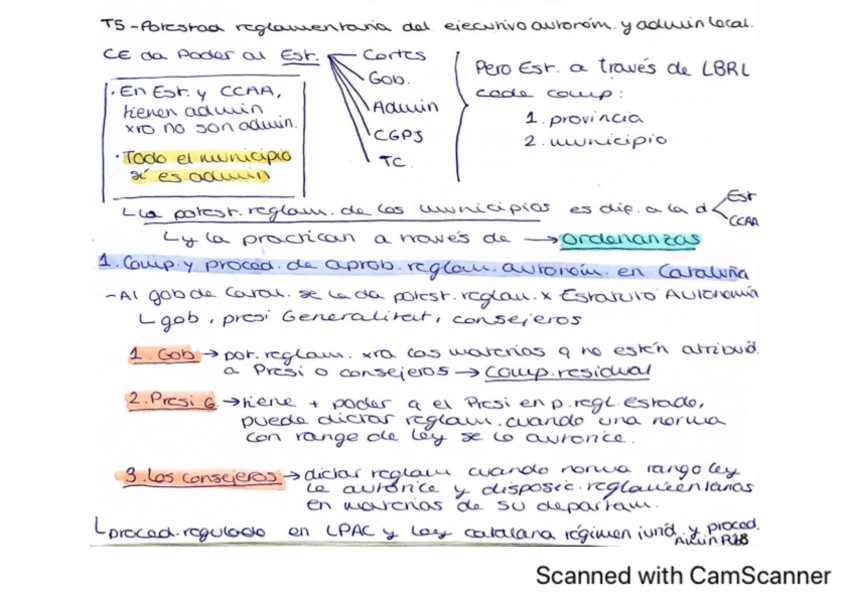 T5 - Potestad reglamentaria del ejecutivo autonóm. y admin local.
CE da Poder al Est.
Cortes
Gob.
Admin
CGPJ
TC
Pero Est. a través de LBRL
cede comp:
1. provincia
2. municipio
· En Est. y CCAA,
tienen admin
xro no son admin.
· Todo el municipio
sí es admin
La potest. reglam. de los municipios es dif. a la d
Est
CCAA
y la practican a través de → ordenanzas
1. Comp. y proced. de aprob. reglam. autonóm. en Cataluña
- Al gob de Catal. se le da potest. reglam. x Estatuto Autonomía
gob, presi Generalitat, consejeros
1. Gob → pot. reglam. xra las materias q no estén atribuid.
a Presi o consejeros → Comp. residual
2. Presi G → tiene + poder q el Presi en p. regl. estado,
puede dictar reglam. cuando una norma
con rango de ley se lo autorice.
3. Los consejeros → dictar reglam cuando norma rango ley
le autorice y disposic. reglamentarias
en materias de su departam.
proced. regulado en LPAC y Ley catalana régimen jurid. y proced.
Scanned with CamScanner